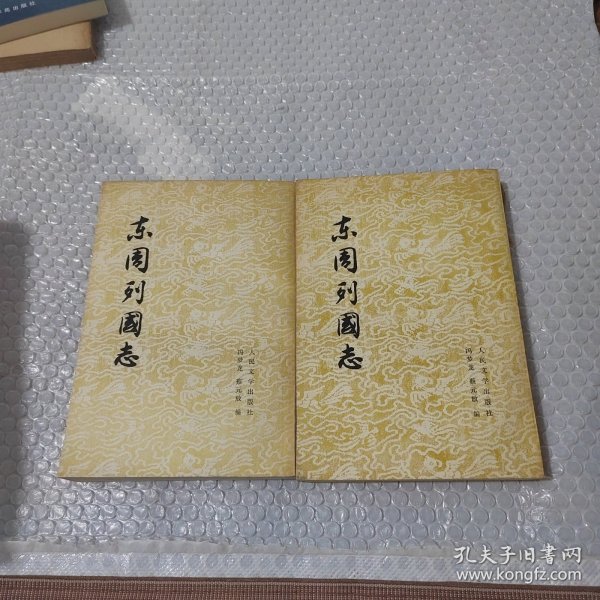 东周列國志
冯梦龙 蔡元放 编
人民文学出版社
东周列國志
冯梦龙 蔡元放 编
人民文学出版社
出版社
孔夫子旧書网
www.kongfz.com